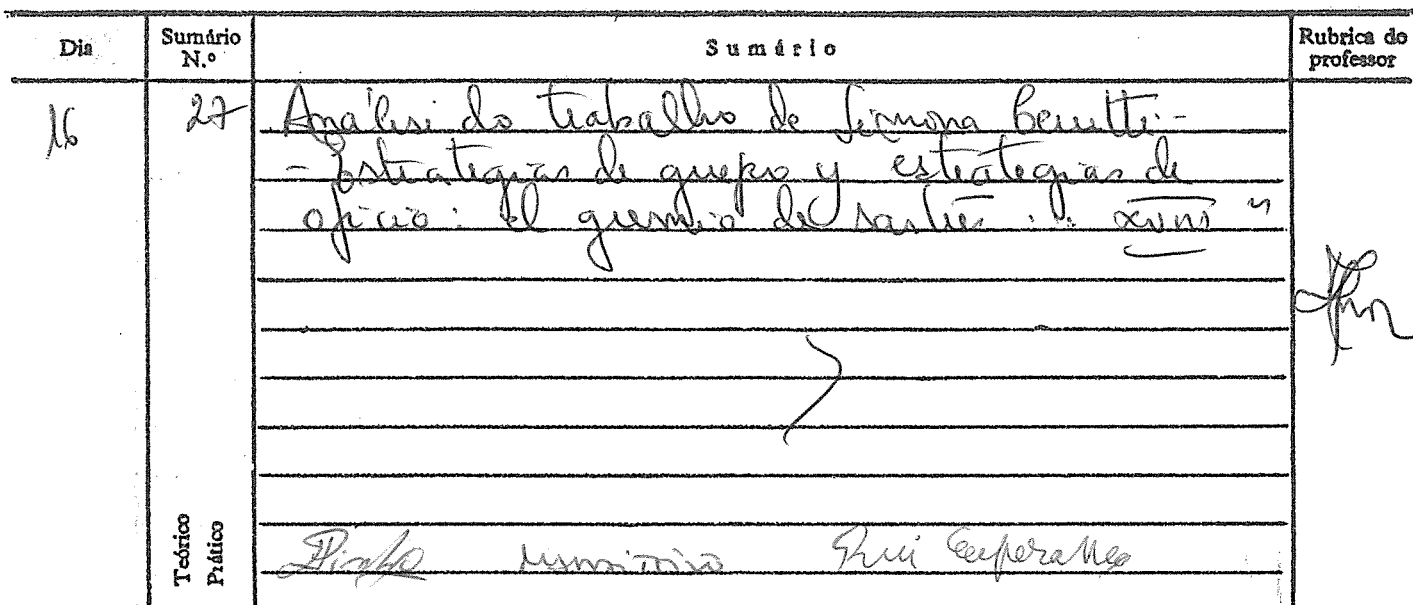 Dia
Sumário N.º
Sumário
Rubrica do professor
16
27
Análise do trabalho de Simona Cerutti -
- Estrategias de grupo y estrategias de
oficio: el gremio de sastres : : XVIII "
Teórico
Prático
Rui